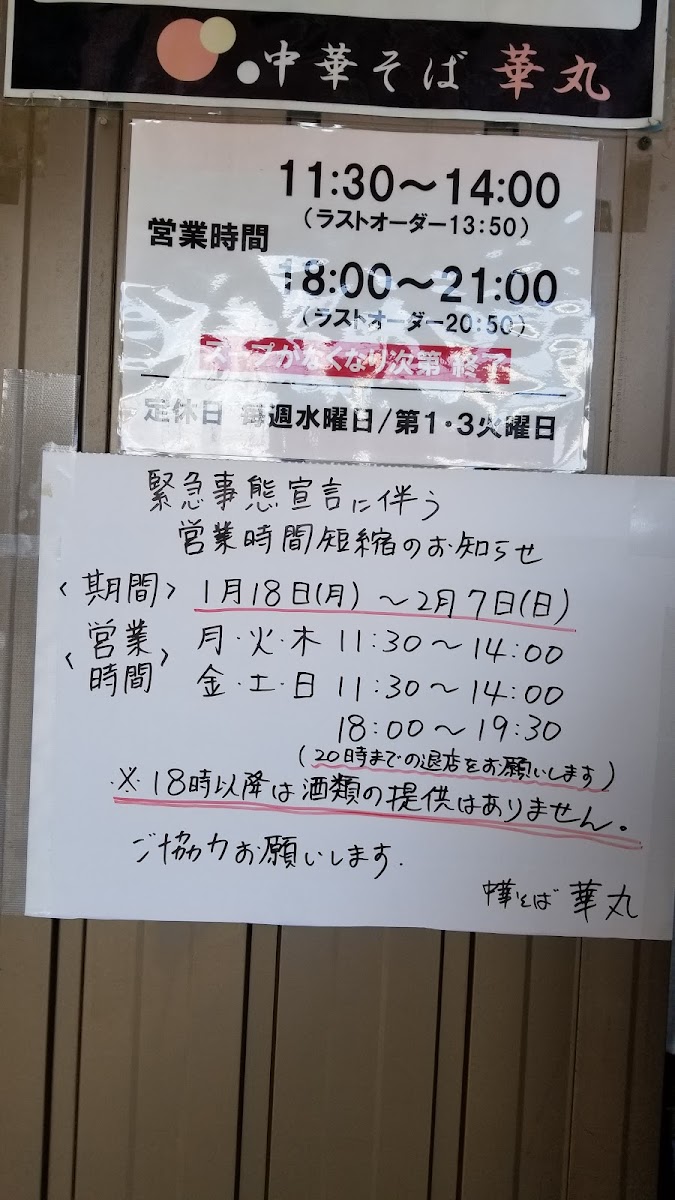 中華そば 華丸
11:30～14:00
(ラストオーダー13:50)
営業時間
18:00～21:00
(ラストオーダー20:50)
スープがなくなり次第 終了
定休日 毎週水曜日/第1・3火曜日
緊急事態宣言に伴う
営業時間短縮のお知らせ
〈期間〉 1月18日(月) ～2月7日(日)
〈営業時間〉 月・火・木 11:30～14:00
金・土・日 11:30～14:00
18:00～19:30
(20時までの退店をお願いします)
※18時以降は酒類の提供はありません。
ご協力お願いします.
中華そば 華丸